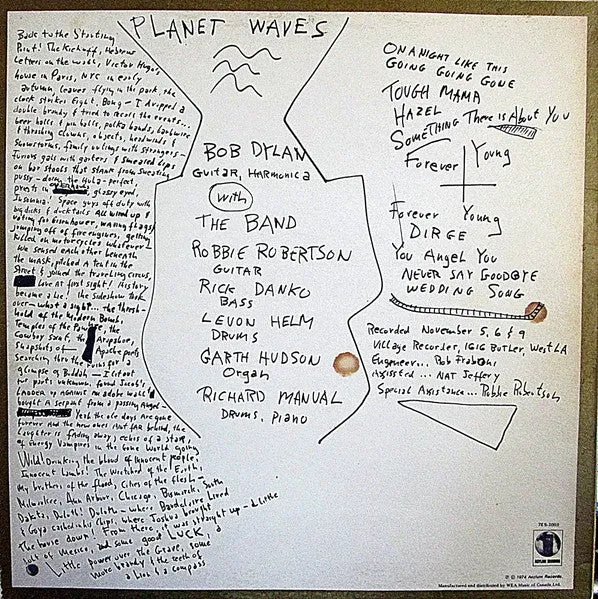 PLANET WAVES
Back to the Starting
Point! The Kickoff, Hebrew
Letters on the wall, Victor Hugo's
house in Paris, NYC in early
autumn, leaves flying in the park, the
clock strikes Eight, Bong – I dropped a
double brandy & tried to recall the events..
beer halls & pin balls, polka bands, barbwire
& thrashing clowns, objects, headwinds &
snowstorms, family outings with strangers –
Furious gals with garters & smeared lips
on bar stools that stank from sweating
pussy – doing the Hula – perfect,
priests in overhauls, glassy eyed,
Insomnia! Space guys off duty with
big dicks & ducktails All wired up &
voting for Eisenhower, waving flags &
jumping off of fire engines, getting
killed on motorcycles whatever –
We sensed each other beneath
the mask, pitched a tent in the
Street & joined the traveling circus,
Love at first sight! History
became a Lie! the sideshow took
over – what a sight... the thresh-
hold of the Modern Bomb,
Temples of the Pawnee, the
Cowboy Saint, the Arapahoe,
Snapshots of Apache poets
searching thru the ruins for a
glimpse of Buddah – I lit out
for parts unknown, found Jacob's
Ladder up against an adobe wall &
bought A serpent from a passing Angel –
Yeah the ole days Are gone
forever And the new ones Aint far behind, the
Laughter is fading away, echos of a star,
of Energy Vampires in the Gone World going
Wild! Drinking the blood of innocent people,
Innocent Lambs! The Wretched of the Earth,
My brothers of the flood, Cities of the flesh –
Milwaukee, Ann Arbor, Chicago, Bismarck, South
Dakota, Duluth! Duluth – where Baudelaire Lived
& Goya cashed in his Chips, where Joshua brought
the house down! From there, it was straight up – a Little
jolt of Mexico, and some good LUCK, a
Little power over the Grave, some
more brandy & the teeth of
a Lion & a compass
BOB DYLAN
Guitar, Harmonica
With
THE BAND
ROBBIE ROBERTSON
GUITAR
RICK DANKO
BASS
LEVON HELM
DRUMS
GARTH HUDSON
Organ
RICHARD MANUAL
DRUMS, PIANO
ON A NIGHT LIKE THIS
GOING GOING GONE
TOUGH MAMA
HAZEL
SOMETHING There is About You
Forever Young
Forever Young
DIRGE
You Angel You
NEVER SAY GOODBYE
WEDDING SONG
Recorded November 5, 6 & 9
Village Recorder, 1616 Butler, West LA
Engineer... Rob Fraboni
Assisted... NAT Jeffery
Special Assistance... Robbie Robertson,
7ES-1003
ASYLUM RECORDS
℗ © 1974 Asylum Records.
Manufactured and distributed by WEA Music of Canada, Ltd.